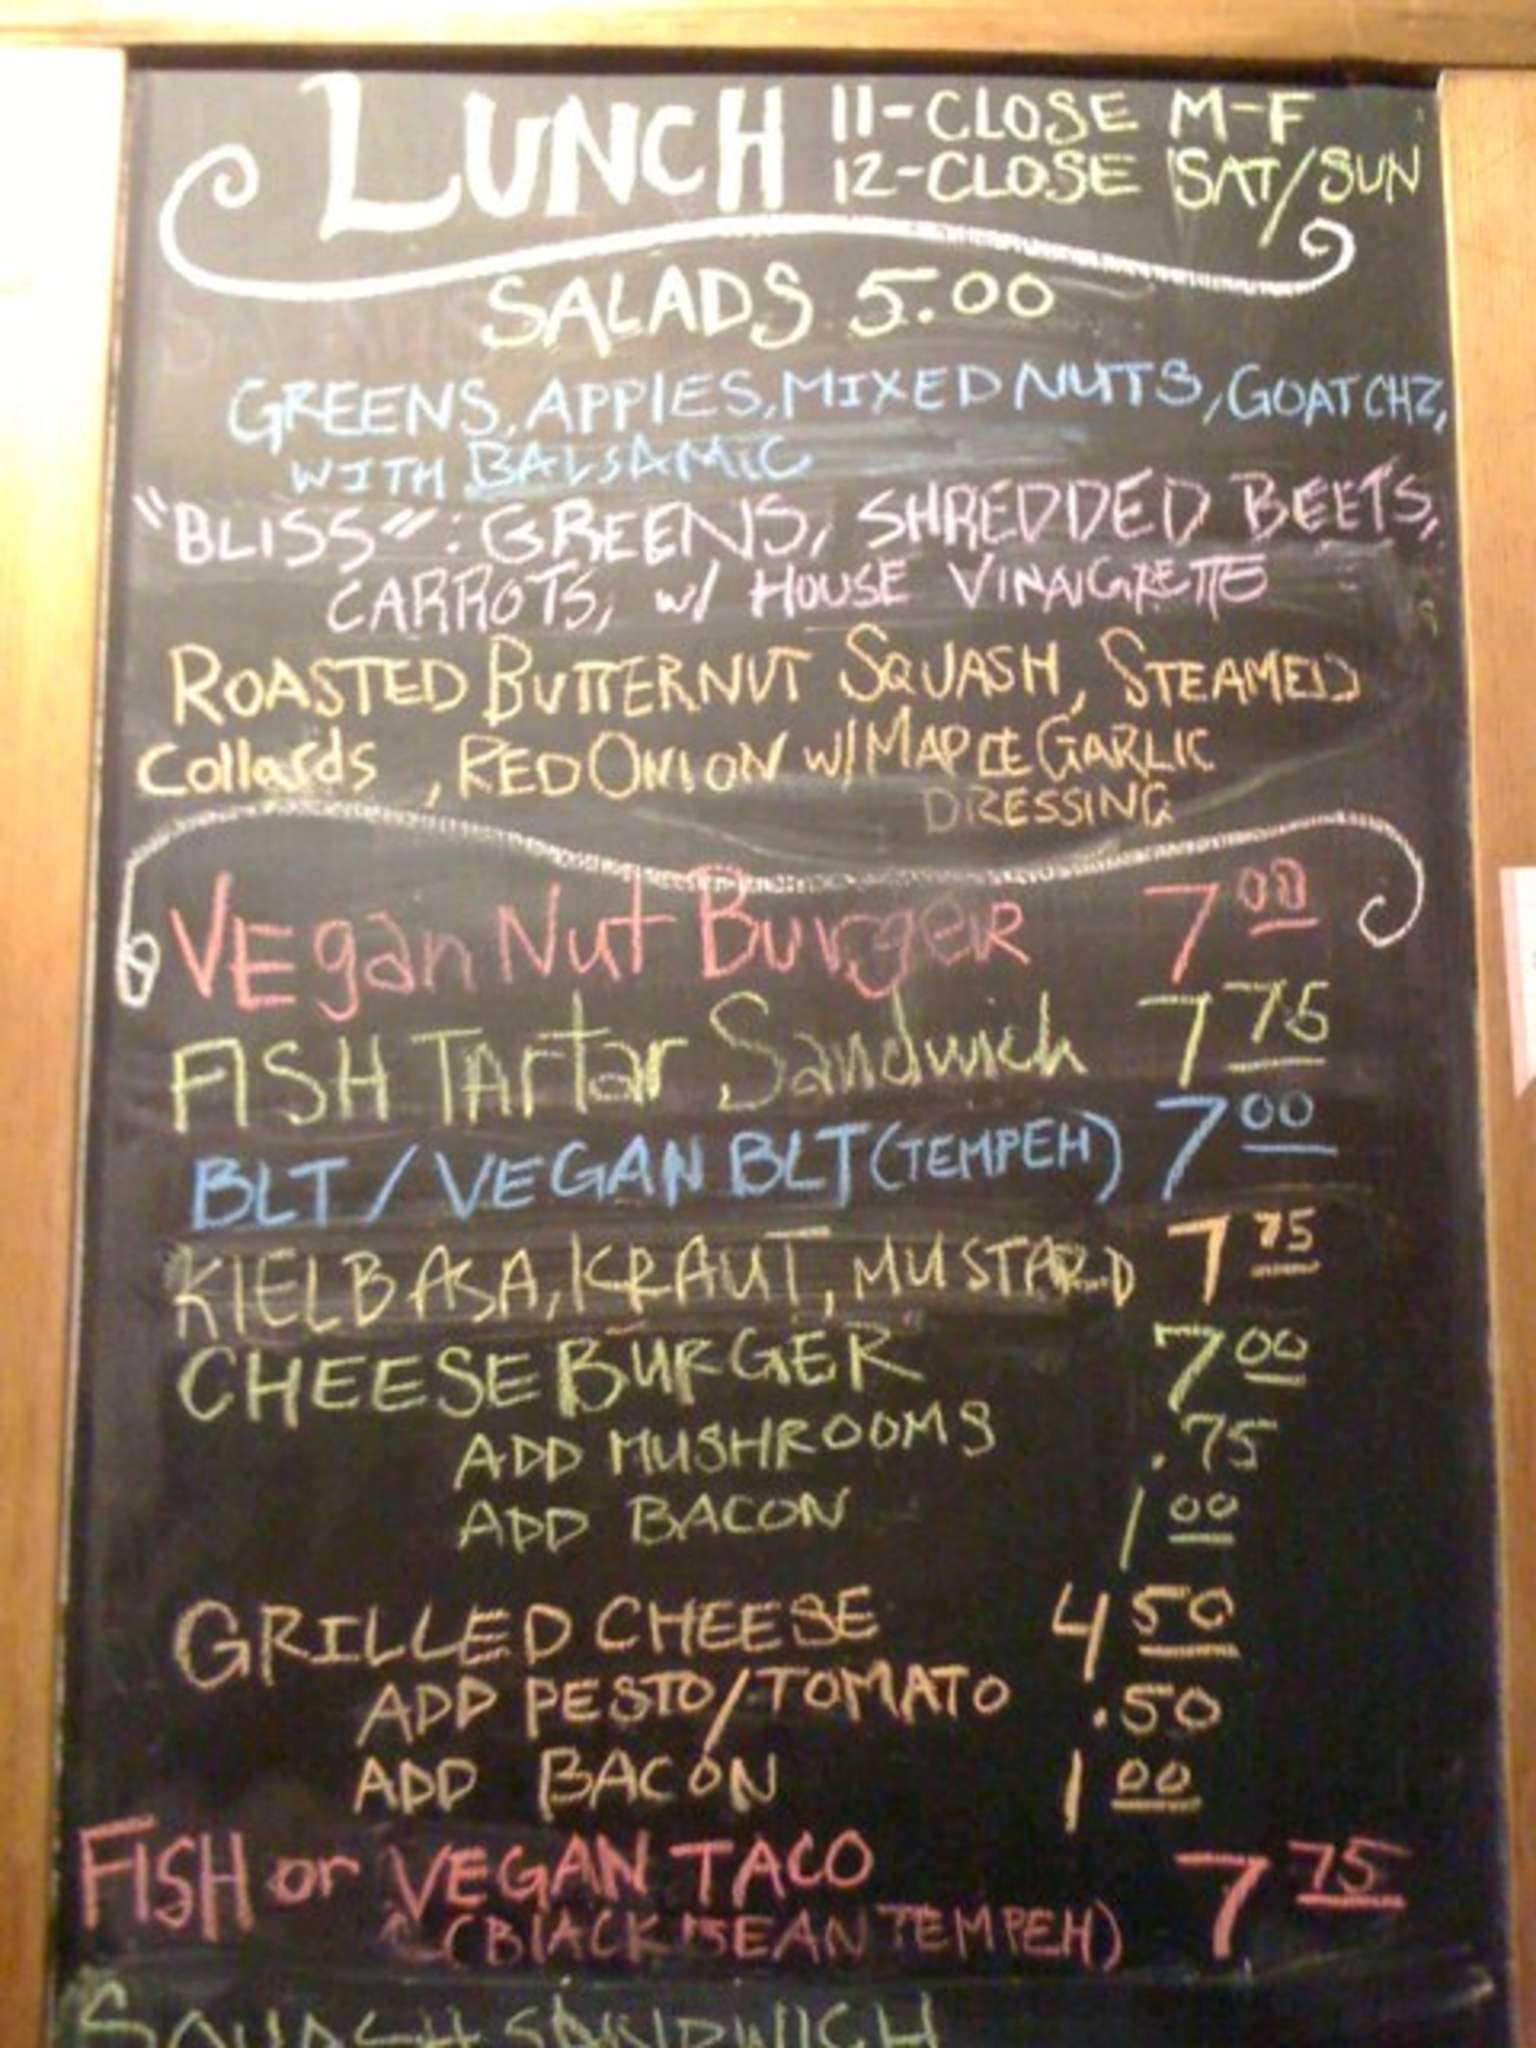 LUNCH 11-CLOSE M-F
12-CLOSE SAT/SUN
SALADS 5.00
GREENS, APPlES, MIXED NUTS, GOAT CHZ,
WITH BALSAMIC
"BLISS": GREENS, SHREDDED BEETS,
CARROTS, w/ HOUSE VINAIGRETTE
ROASTED BUTTERNUT SQUASH, STEAMED
Collards, RED ONION W/ MAPLE GARLIC
DRESSING
VEgan Nut BurgeR 7 00
FISH TArtar Sandwich 7 75
BLT / VEGAN BLT (TEMPEH) 7 00
KIELBASA, KRAUT, MUSTARD 7 75
CHEESEBURGER 7 00
ADD MUSHROOMS .75
ADD BACON 1 00
GRILLED CHEESE 4 50
ADD PESTO/TOMATO .50
ADD BACON 1 00
FISH or VEGAN TACO 7 75
(BlACK BEAN TEMPEH)
SQUASH SANDWICH